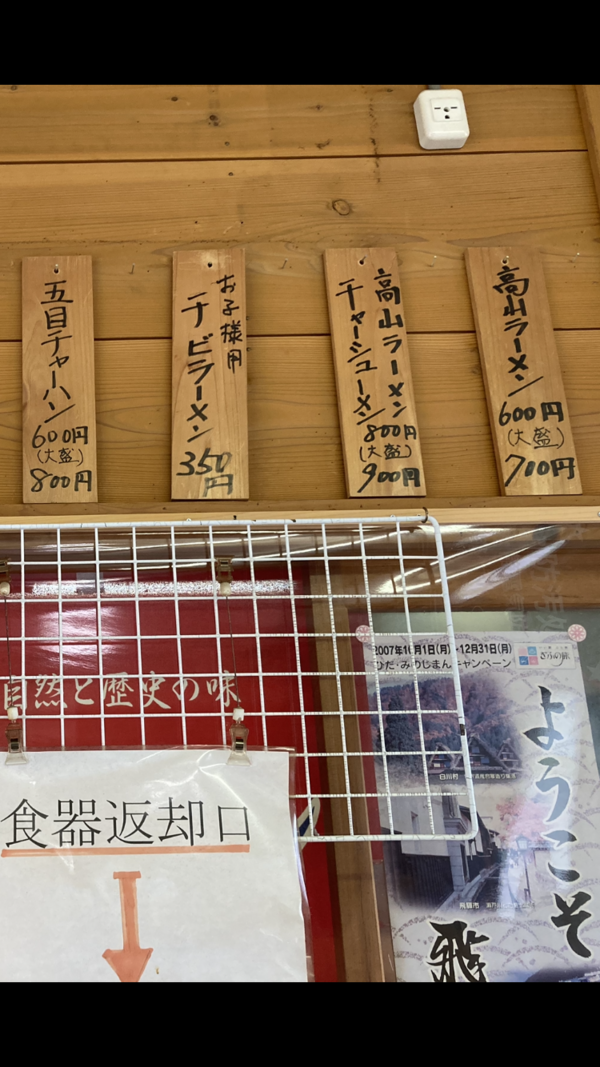 高山ラーメン
600円
(大盛)
700円
高山ラーメン
チャーシューメン
800円
(大盛)
900円
お子様用
チビラーメン
350
円
五目チャーハン
600円
(大盛)
800円
自然と歴史の味
食器返却口
2007年10月1日(月)-12月31日(月)
ひだ・みのじまんキャンペーン
ようこそ
飛
白川村
飛騨市